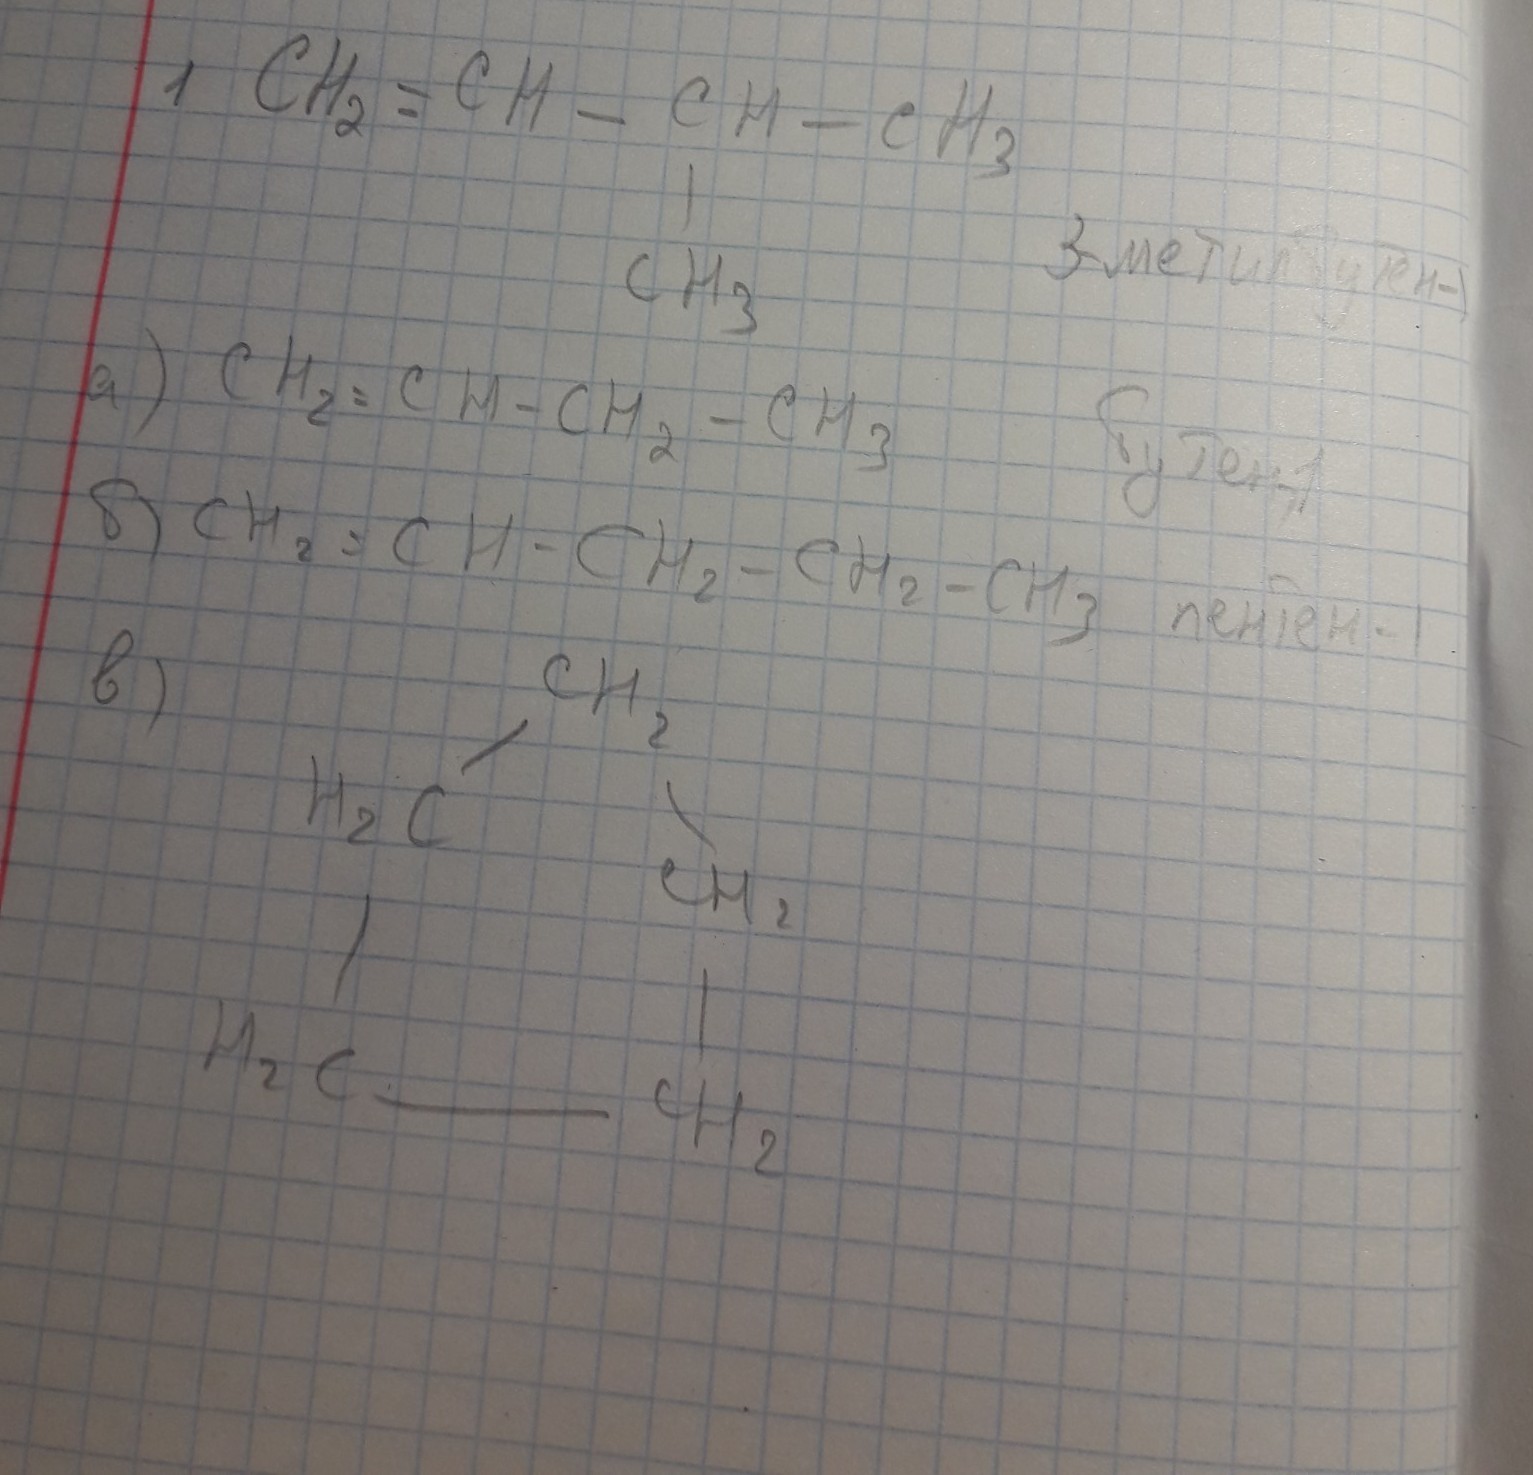 1 CH₂=CH-CH-CH₃
CH₃
3-метилбутен-1
а) CH₂=CH-CH₂-CH₃ бутен-1
б) CH₂=CH-CH₂-CH₂-CH₃ пентен-1
в) CH₂
H₂C
CH₂
H₂C — CH₂